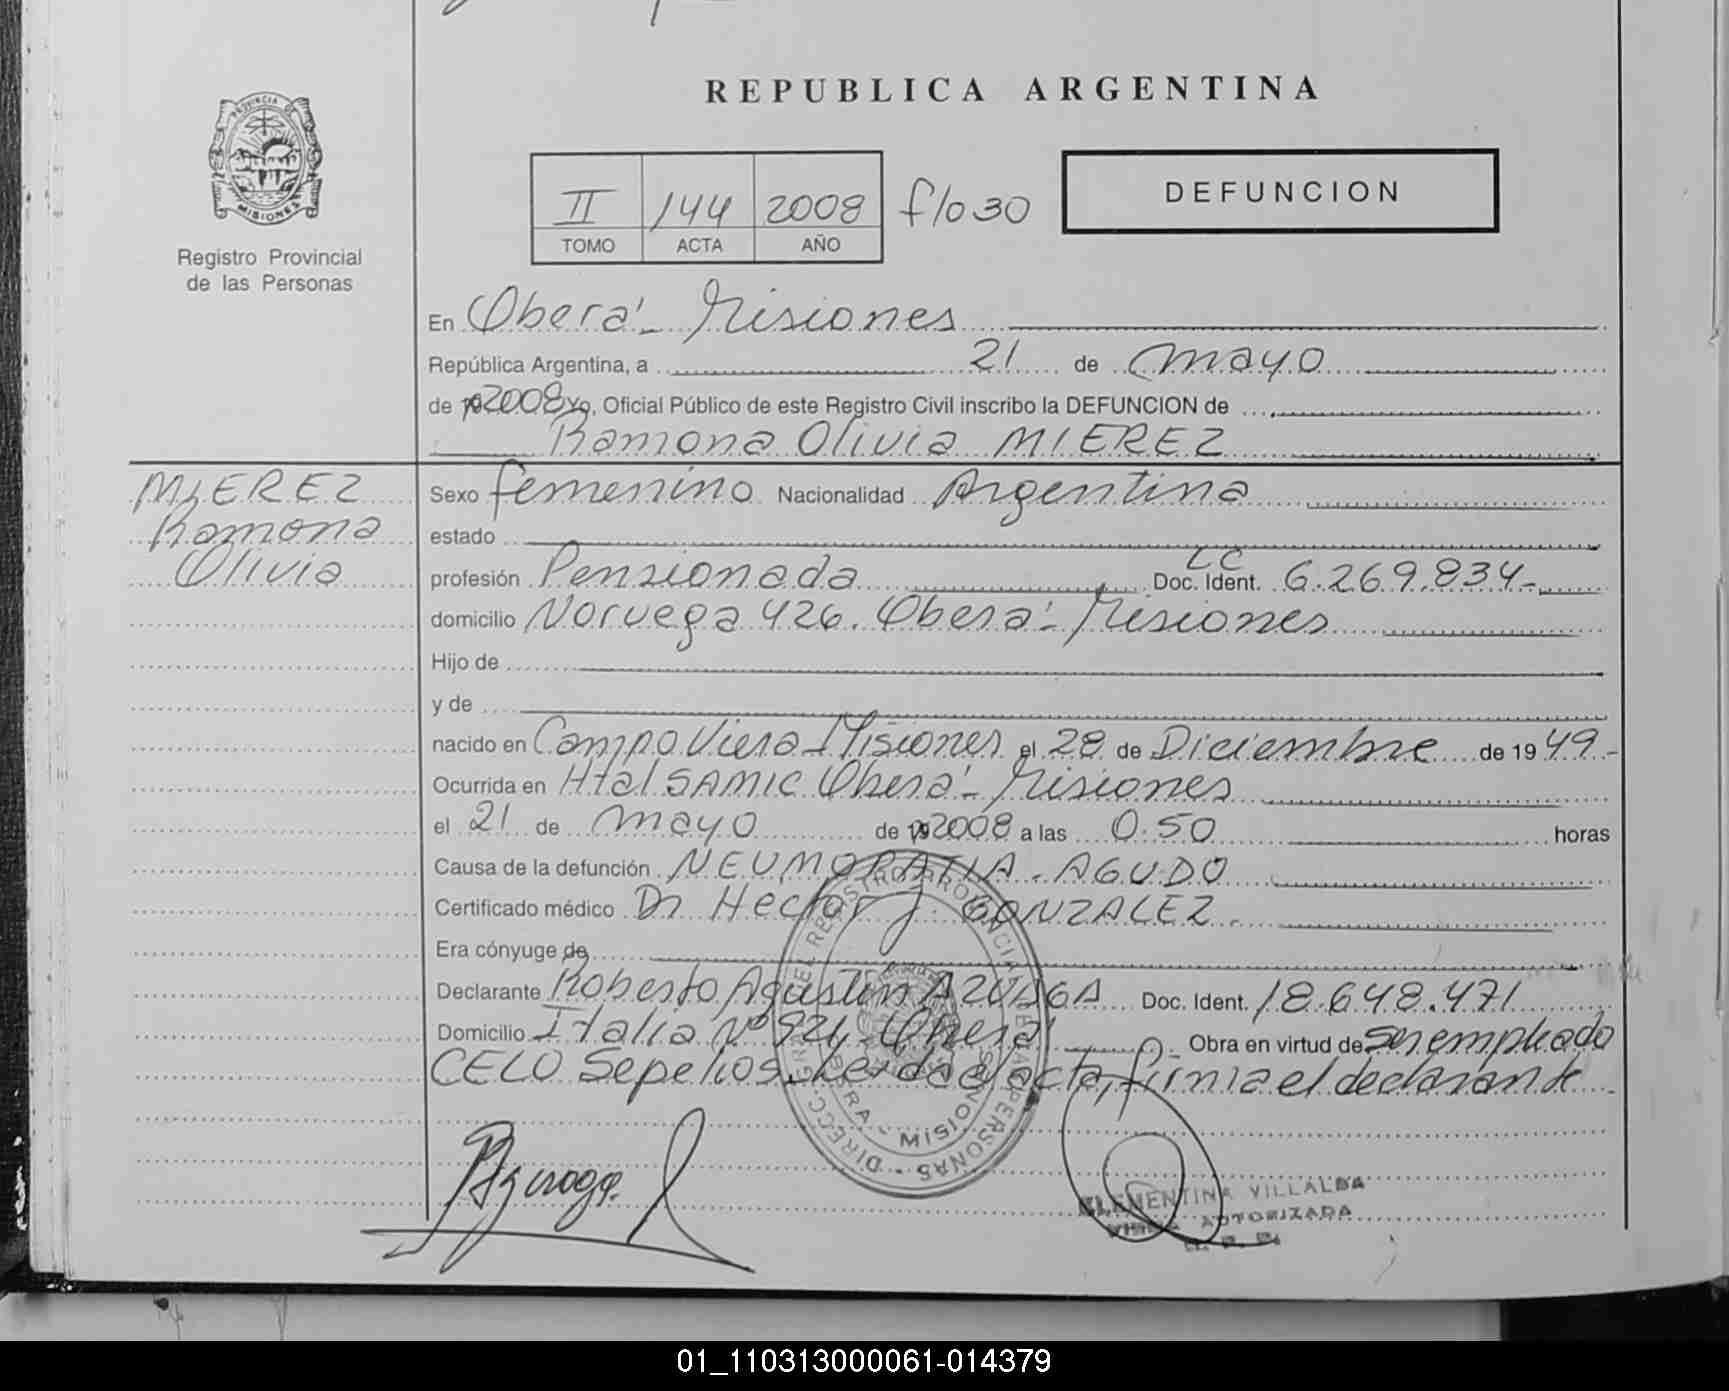 REPUBLICA ARGENTINA
PROVINCIA DE
MISIONES
Registro Provincial
de las Personas
II 144 2008 f/o 30
TOMO ACTA AÑO
DEFUNCION
En Oberá - Misiones
República Argentina, a 21 de mayo
de 2008 Yo, Oficial Público de este Registro Civil inscribo la DEFUNCION de
Ramona Olivia MIEREZ
MIEREZ
Ramona
Olivia
Sexo femenino Nacionalidad Argentina
estado
profesión Pensionada Doc. Ident. LC 6.269.834-
domicilio Noruega 426. Oberá - Misiones
Hijo de
y de
nacido en Campo Viera - Misiones el 28 de Diciembre de 1949-
Ocurrida en Htal SAMIC Oberá - Misiones
el 21 de mayo de 2008 a las 0.50 horas
Causa de la defunción NEUMOPATIA - AGUDO
Certificado médico Dr Hector J. GONZALEZ
Era cónyuge de
Declarante Roberto Agustin AZUAGA Doc. Ident. 18.648.471
Domicilio Italia Nº 921 Oberá - Obra en virtud de ser empleado
CELO Sepelios. Leida el acta, firma el declarante
MISIONES
CLEMENTINA VILLALBA
AUTORIZADA
01_110313000061-014379